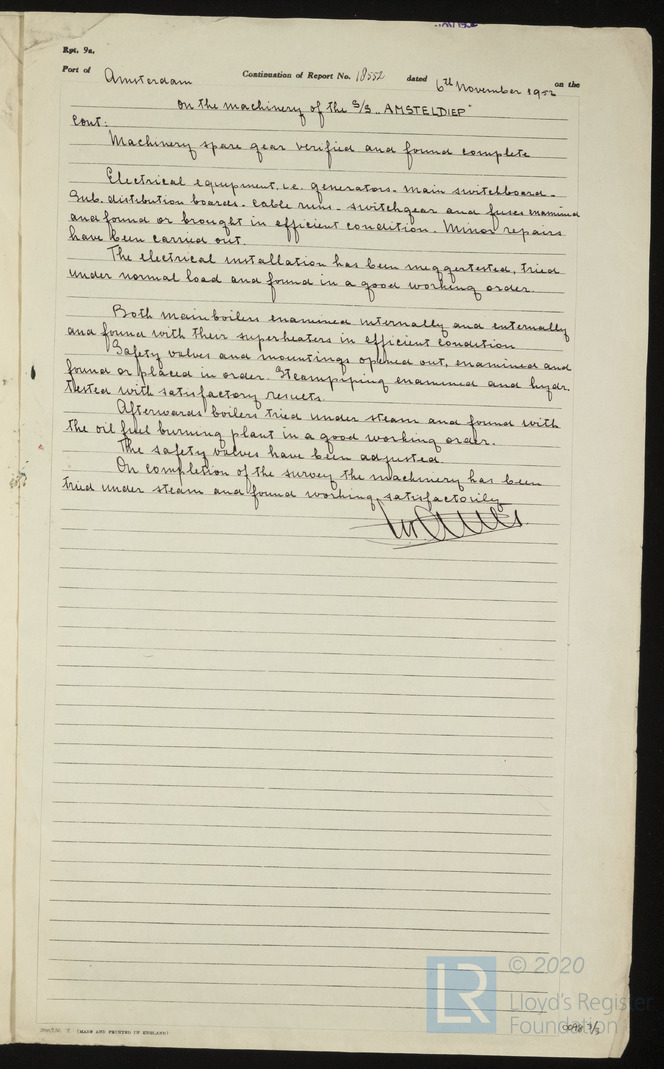 Rpt. 9a.
Port of Amsterdam Continuation of Report No. 18552 dated 6th November 1952 on the
on the machinery of the S/S „AMSTELDIEP"
Cont:
Machinery spare gear verified and found complete
Electrical equipment, i.e. generators - main switchboard -
Sub. distribution boards - cable runs - switchgear and fuses examined
and found or brought in efficient condition. Minor repairs
have been carried out.
The electrical installation has been meggertested, tried
under normal load and found in a good working order.
Both main boilers examined internally and externally
and found with their superheaters in efficient condition
Safety valves and mountings opened out, examined and
found or placed in order. Steampiping examined and hydr.
tested with satisfactory results.
Afterwards boilers tried under steam and found with
the oil fuel burning plant in a good working order.
The safety valves have been adjusted.
On completion of the survey the machinery has been
tried under steam and found working satisfactorily
(MADE AND PRINTED IN ENGLAND)
© 2020
LR
Lloyd's Register
Foundation